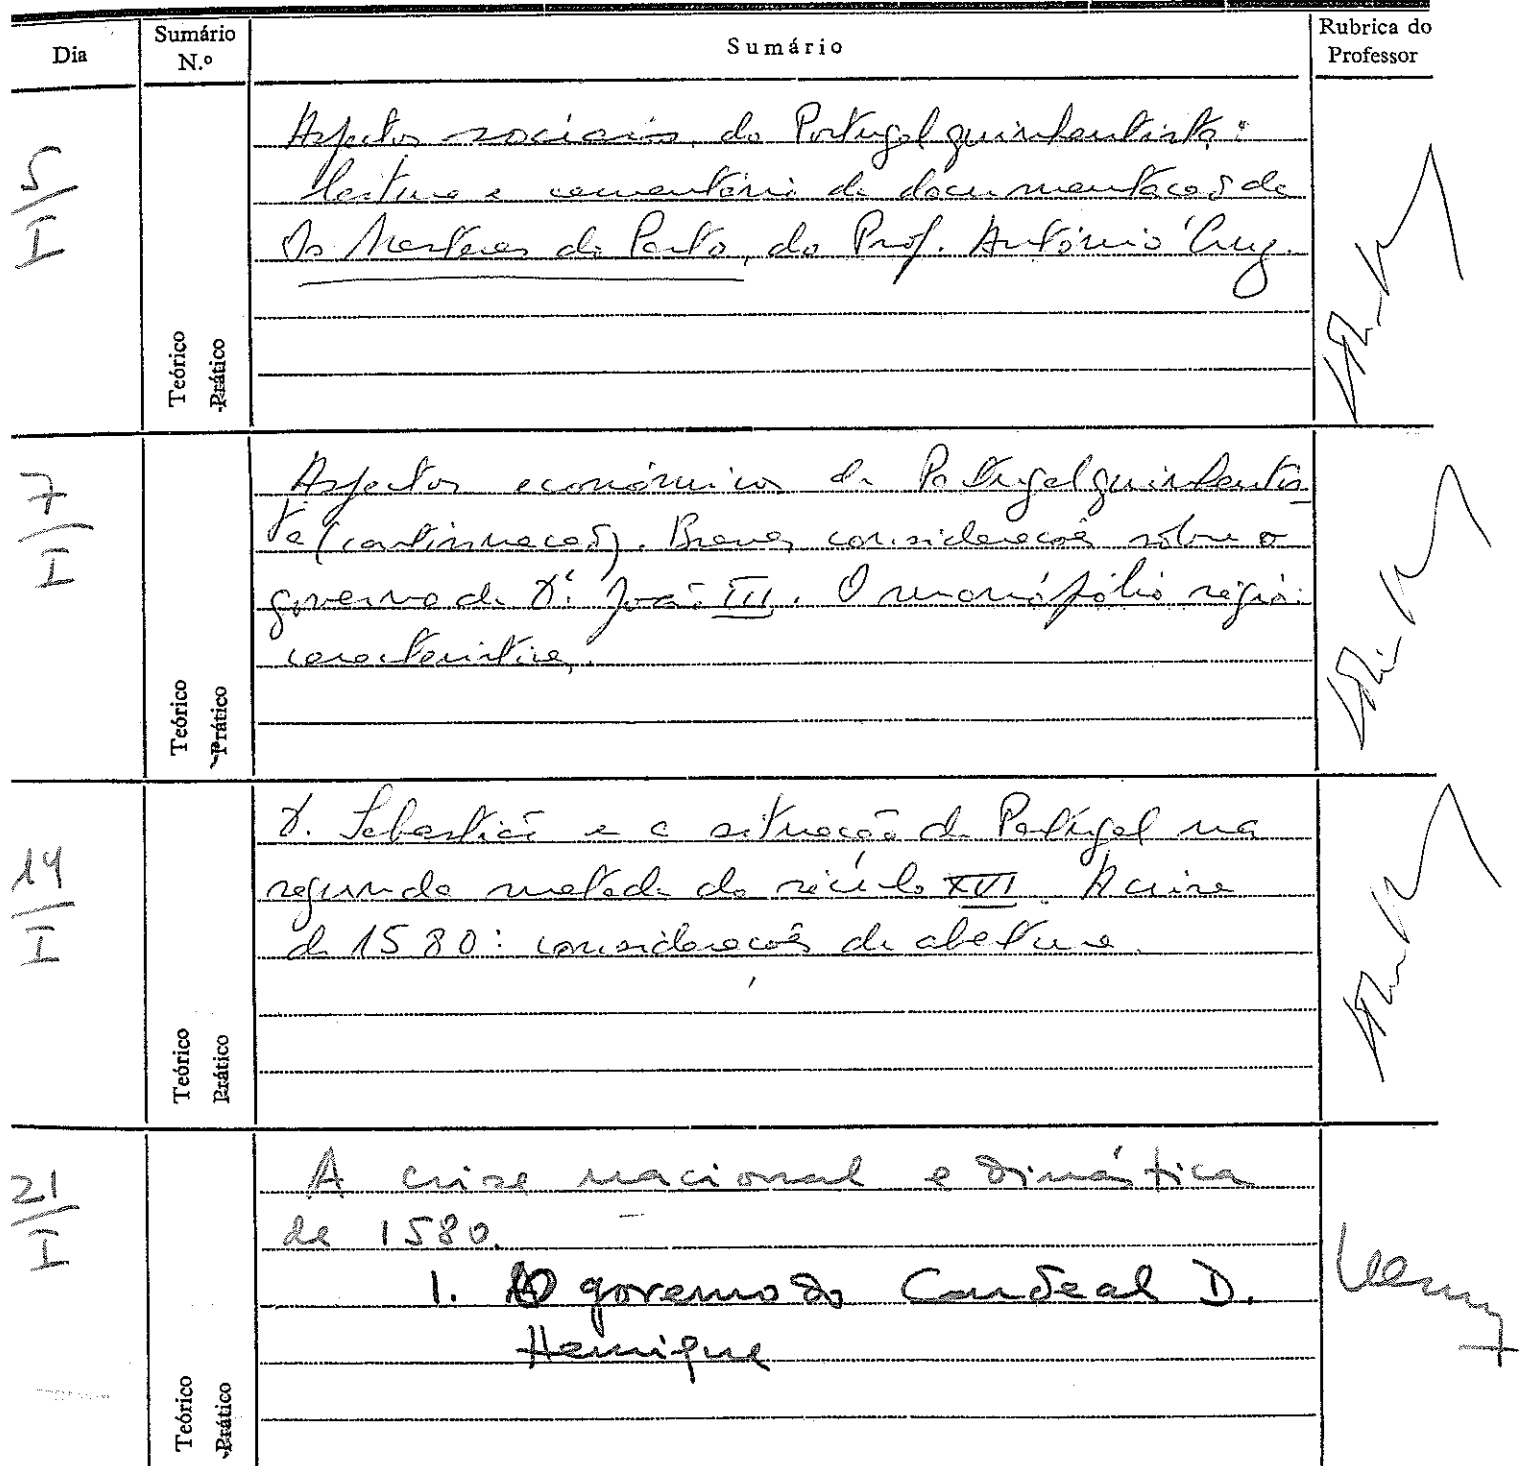 Dia
Sumário N.º
Sumário
Rubrica do Professor
5/I
Aspectos sociais do Portugal quinhentista:
leitura e comentário de documentação de
Os Mesteres do Porto, do Prof. António Cruz.
Teórico
Prático
7/I
Aspectos económicos do Portugal quinhentis
ta (continuação). Breves considerações sôbre o
governo de D. João III. O monopólio régio:
características.
Teórico
Prático
19/I
D. Sebastião e a situação de Portugal na
segunda metade do século XVI. A crise
de 1580: considerações de abertura.
Teórico
Prático
21/I
A crise nacional e dinástica
de 1580.
1. O governo do Cardeal D.
Henrique
Teórico
Prático